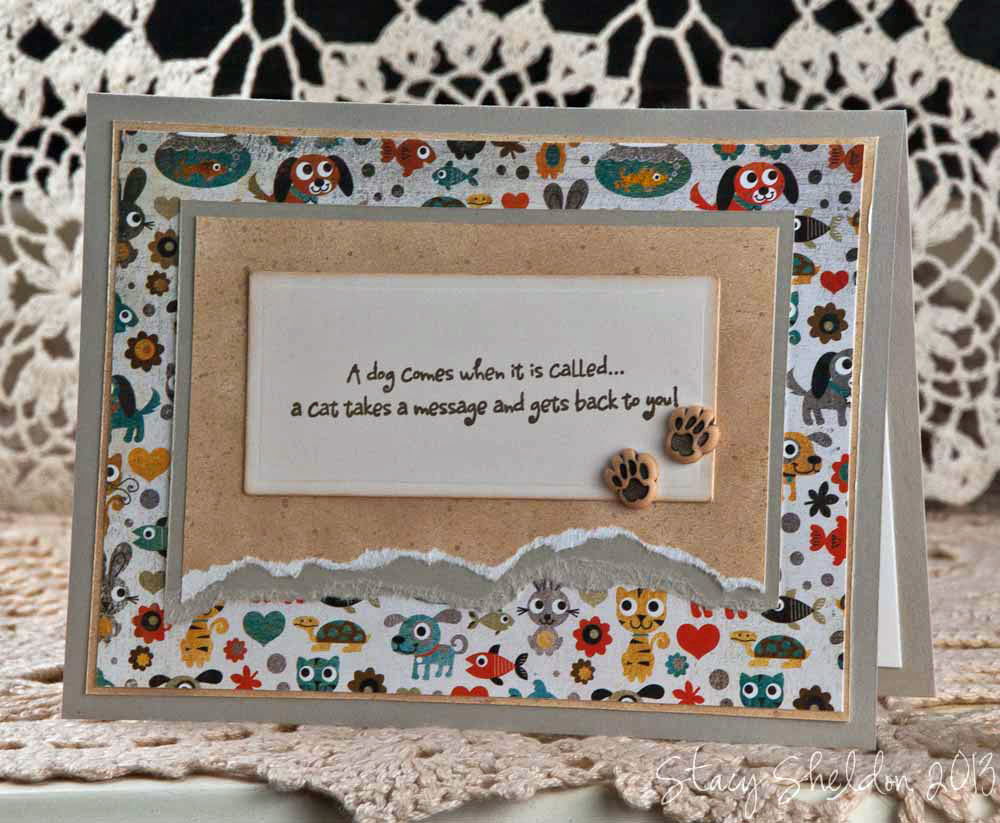 A dog comes when it is called...
a cat takes a message and gets back to you!
Stacy Sheldon 2013